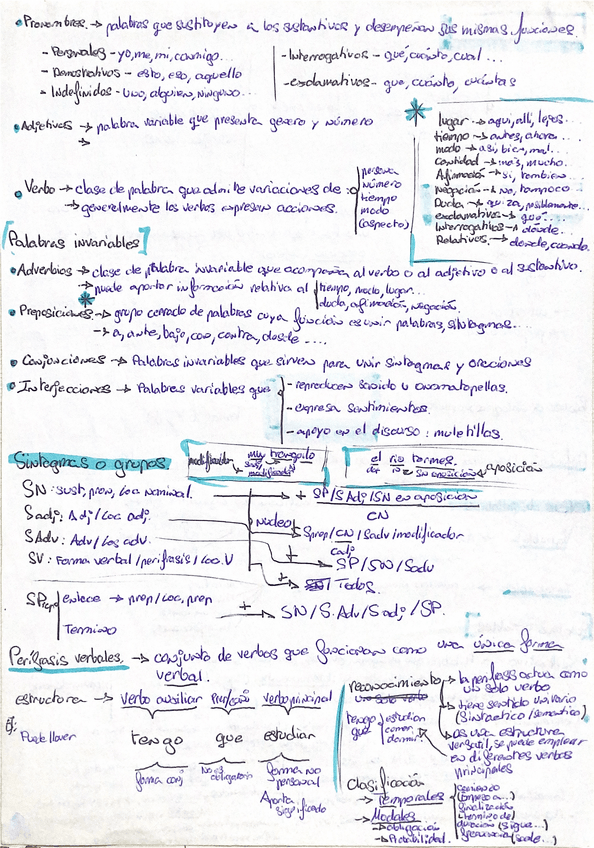 • Pronombres. → palabras que sustituyen a los sustantivos y desempeñan sus mismas funciones.
- Personales - yo, me, mi, conmigo...
- Demostrativos - esto, eso, aquello
- Indefinidos - uno, alguien, ninguno...
- Interrogativos - qué, cuánto, cual...
- exclamativos - que, cuánto, cuántas
• Adjetivos → palabra variable que presenta género y número
→
*
lugar → aquí, allí, lejos...
tiempo → antes, ahora...
modo → así, bien, mal...
Cantidad → más, mucho.
Afirmación → sí, tambien...
Negación → No, tampoco...
Duda → quiza, posiblemente...
exclamativos → qué...
Interrogativos → dónde...
Relativos → donde, cuando.
• Verbo → clase de palabra que admite variaciones de:
→ generalmente los verbos expresan acciones.
persona
número
tiempo
modo
(aspecto)
[Palabras invariables]
• Adverbios → clase de palabra invariable que acompaña al verbo o al adjetivo o al sustantivo.
→ puede aportar información relativa al tiempo, modo, lugar...
duda, afirmación, negación.
*
• Preposiciones → grupo cerrado de palabras cuya función es unir palabras, sintagmas...
→ a, ante, bajo, con, contra, desde ....
• Conjunciones → Palabras invariables que sirven para unir sintagmas y oraciones
• Interjecciones → Palabras variables que
- reproducen sonido u onomatopellas.
- expresa sentimientos.
- apoyo en el discurso: muletillas.
Sintagmas o grupos.
modificador
muy tranquilo
modificador
el rio tormes.
SN aposición
aposición
SN: sust, pron, Loc nominal.
+ SP/S Adj/SN en aposición
CN
S adj: Adj/Loc adj.
Núcleo
Sprep/CN/Sadv/modificador
cadj
S Adv: Adv/Loc adv.
+ SP/SN/Sadv
SV: Forma verbal/perífrasis/Loc.V
+ SN/Todos.
SPrep
enlace → prep/Loc, prep
Termino
+ SN/S. Adv/S adj/SP.
Perífrasis verbales. → conjunto de verbos que funcionan como una única forma
verbal.
estructora → Verbo auxiliar Prep/conj Verbo principal
Ej:
Puede llover
tengo que estudiar
forma conj
No es obligatorio
forma no
personal
Aporta
significado
reconocimiento
un solo verbo
→ la perífrasis actua como
un solo verbo
tengo
que
estudiar
comer
dormir.
→ tiene sentido unitario
(sintactico/semantico)
→ es una estructura
versatil, se puede emplear
en diferentes verbos
principales
Clasificación
→ Temporales
(empezo a...)
finalización
(termino de)
duración (sigue...)
frecuencia (suele...)
→ Modales
→ obligación
→ Probabilidad.